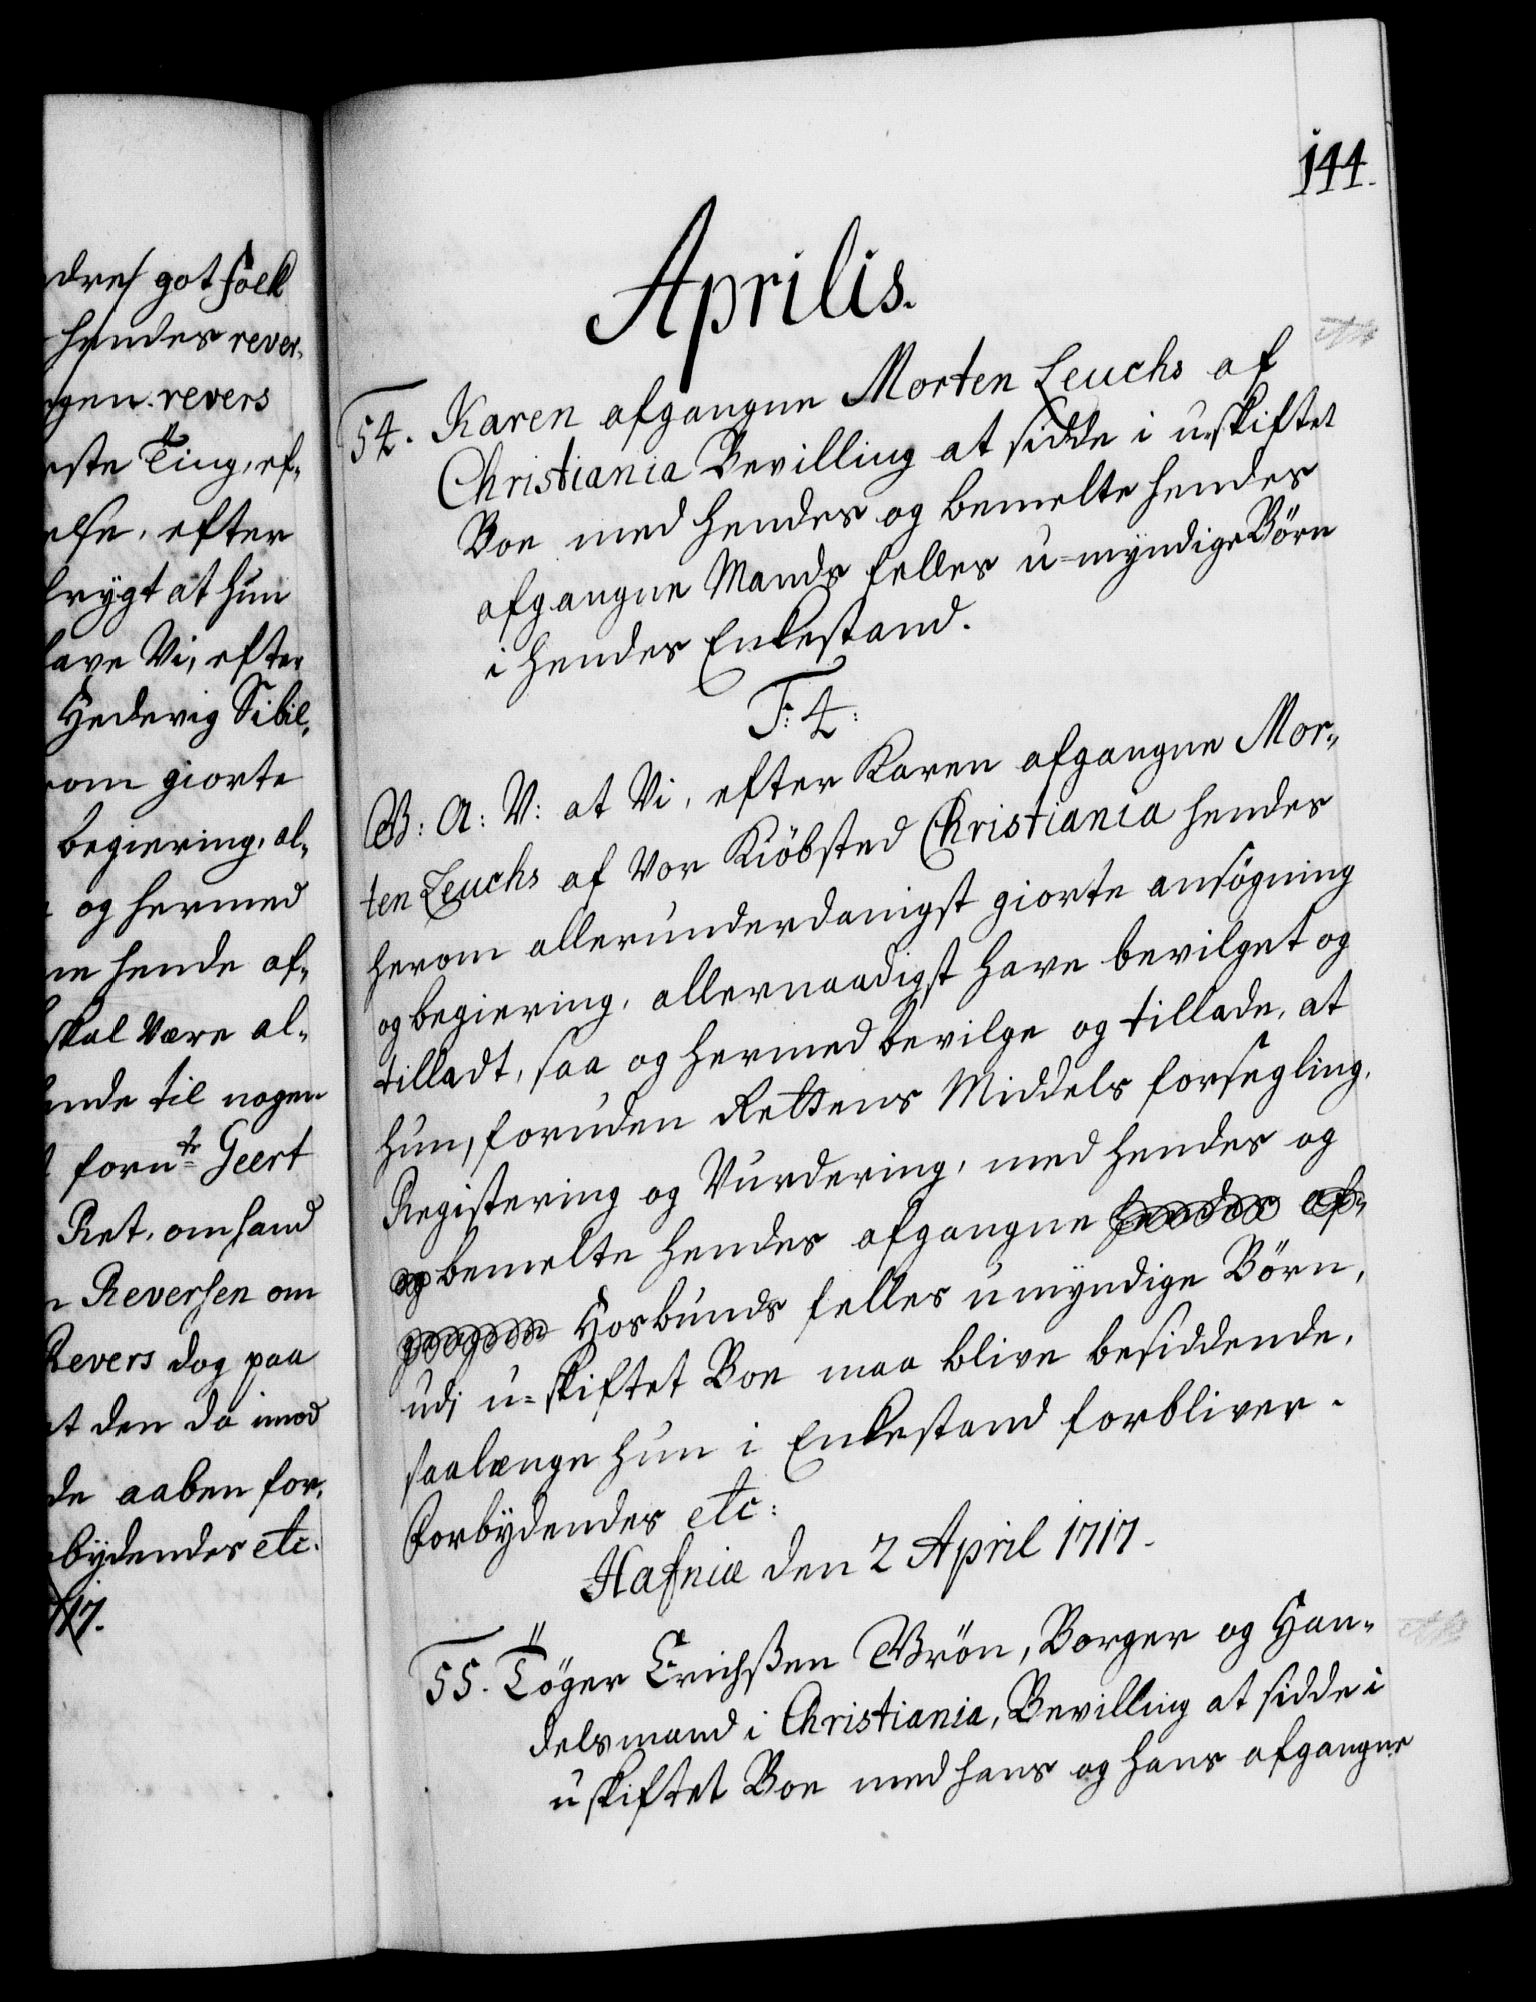 dres got folk
hendes rever¬
gen. revers
ste Ting, ef¬
else, efter
brygt at hun
have Vi, efter
Hedevig Sibil¬
om giorte
begiering, al¬
og hermed
hende af¬
skal være al¬
til nogen
fornte Geert
Ret, om hand
Reversen om
Revers dog paa
at den da imod
de aaben for¬
bydendes etc.
1717.
144.
Aprilis.
54. Karen afgangne Morten Leuchs af
Christiania Bevilling at sidde i u-skiftet
Boe med hendes og bemelte hendes
afgangne Mands felles u-myndige Börn
i hendes Enkestand.
F: 4:
W: A: V: at Vi, efter Karen afgangne Mor¬
ten Leuchs af Vor Kiöbsted Christiania hendes
herom allerunderdanigst giorte ansögning
og begiering, allernaadigst have bevilget og
tilladt, saa og hermed bevilge og tillade, at
hun, foruden Rettens Middels forsegling,
Registering og Vurdering, med hendes og
og bemelte hendes afgangne hendes af¬
gangne Hosbunds felles umyndige Börn,
udi u-skiftet Boe maa blive besiddende,
saalænge hun i Enkestand forbliver.
Forbydendes etc:
Hafniæ den 2 April 1717.
55. Töger Erichsen Grön, Borger og Han¬
delsmand i Christiania, Bevilling at sidde i
uskiftet Boe med hans og hans afgangne